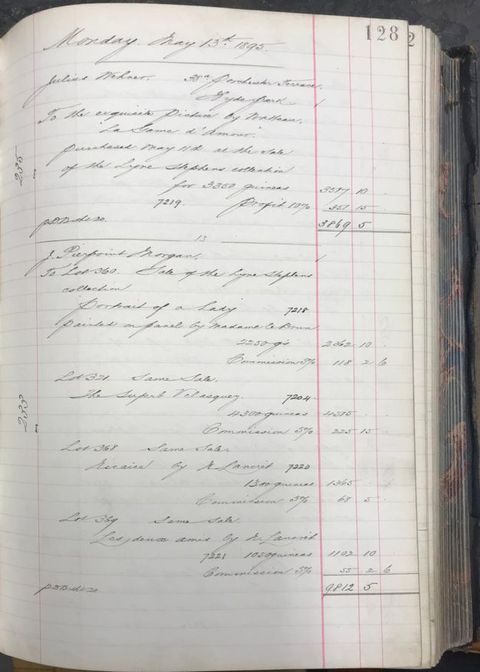 128
Monday May 13th 1895.
Julius Wehner. 38a Porchester Terrace,
Hyde Park
To the exquisite Picture by Watteau,
"La Game d'Amour"
purchased May 11th at the Sale
of the Lyne Stephens collection
for 3350 guineas 3517 10
7219. Profit 10% 351 15
3869 5
13
J. Pierpoint Morgan,
To Lot 360. Sale of the Lyne Stephens
collection
Portrait of a Lady 7218
painted on panel by Madame le Brun
2250 gs 2362 10
Commission 5% 118 2 6
Lot 321. Same Sale.
The Superb Velasquez. 7204
4300 guineas 4515
Commission 5% 225 15
Lot 368 Same Sale.
by N Lancret 7220
1300 guineas 1365
Commission 5% 68 5
Lot 369 Same Sale
Les deux amis by N Lancret
7221 1050 guineas 1102 10
Commission 5% 55 2 6
9812 5